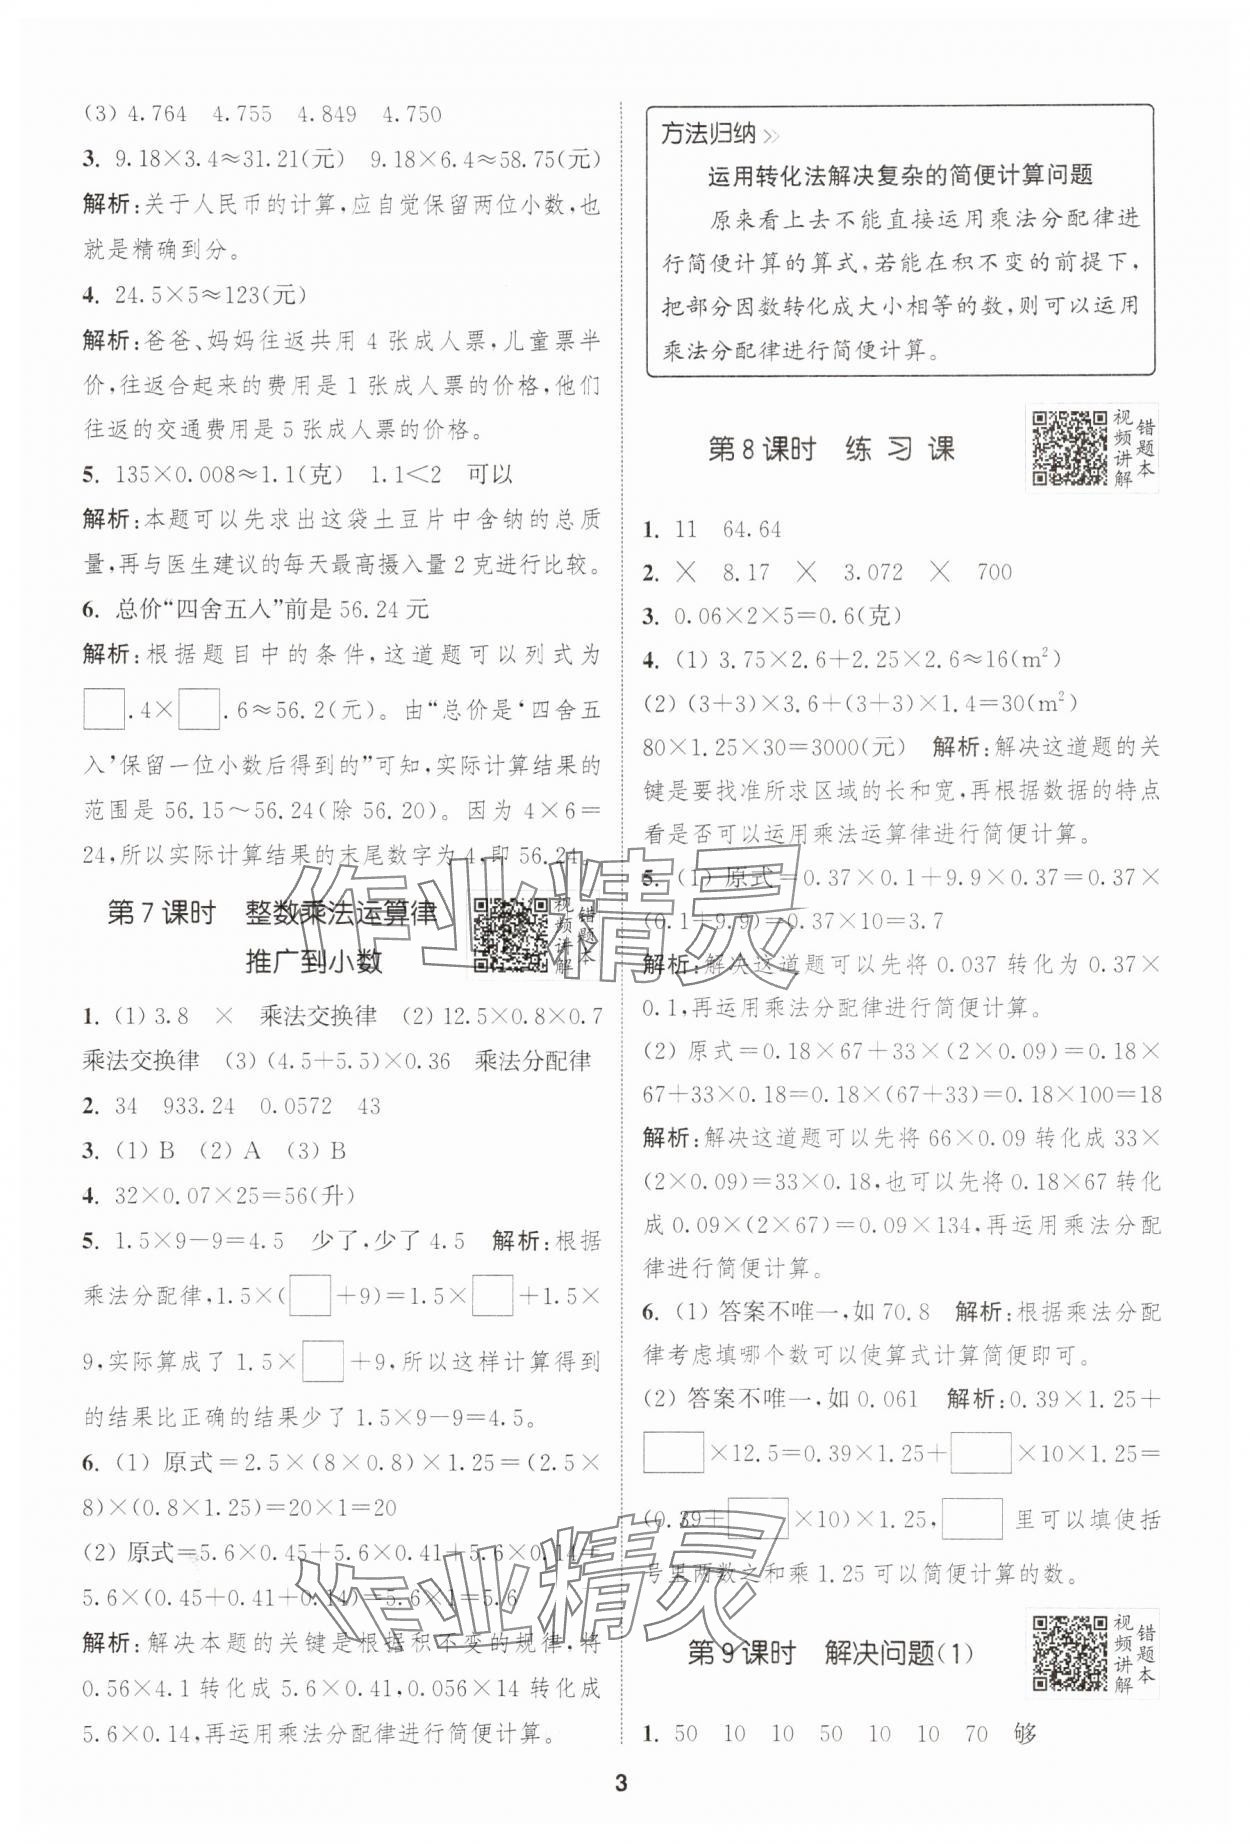 (3) 4.764　4.755　4.849　4.750
3. 9.18×3.4≈31.21(元)　9.18×6.4≈58.75(元)
解析:关于人民币的计算,应自觉保留两位小数,也
就是精确到分。
4. 24.5×5≈123(元)
解析:爸爸、妈妈往返共用 4 张成人票,儿童票半
价,往返合起来的费用是 1 张成人票的价格,他们
往返的交通费用是 5 张成人票的价格。
5. 135×0.008≈1.1(克)　1.1<2　可以
解析:本题可以先求出这袋土豆片中含钠的总质
量,再与医生建议的每天最高摄入量 2 克进行比较。
6. 总价“四舍五入”前是 56.24 元
解析:根据题目中的条件,这道题可以列式为
□.4×□.6≈56.2(元)。由“总价是‘四舍五
入’保留一位小数后得到的”可知,实际计算结果的
范围是 56.15～56.24(除 56.20)。因为 4×6=
24,所以实际计算结果的末尾数字为 4,即 56.24。
第 7 课时　整数乘法运算律
推广到小数
视频讲解
错题本
1. (1) 3.8　×　乘法交换律　(2) 12.5×0.8×0.7
乘法交换律　(3) (4.5+5.5)×0.36　乘法分配律
2. 34　933.24　0.0572　43
3. (1) B　(2) A　(3) B
4. 32×0.07×25=56(升)
5. 1.5×9-9=4.5　少了,少了 4.5　解析:根据
乘法分配律,1.5×(□+9)=1.5×□+1.5×
9,实际算成了 1.5×□+9,所以这样计算得到
的结果比正确的结果少了 1.5×9-9=4.5。
6. (1) 原式=2.5×(8×0.8)×1.25=(2.5×
8)×(0.8×1.25)=20×1=20
(2) 原式=5.6×0.45+5.6×0.41+5.6×0.14=
5.6×(0.45+0.41+0.14)=5.6×1=5.6
解析:解决本题的关键是根据积不变的规律,将
0.56×4.1 转化成 5.6×0.41,0.056×14 转化成
5.6×0.14,再运用乘法分配律进行简便计算。
方法归纳
运用转化法解决复杂的简便计算问题
原来看上去不能直接运用乘法分配律进
行简便计算的算式,若能在积不变的前提下,
把部分因数转化成大小相等的数,则可以运用
乘法分配律进行简便计算。
第 8 课时　练 习 课
视频讲解
错题本
1. 11　64.64
2. ×　8.17　×　3.072　×　700
3. 0.06×2×5=0.6(克)
4. (1) 3.75×2.6+2.25×2.6≈16(m²)
(2) (3+3)×3.6+(3+3)×1.4=30(m²)
80×1.25×30=3000(元)　解析:解决这道题的关
键是要找准所求区域的长和宽,再根据数据的特点
看是否可以运用乘法运算律进行简便计算。
5. (1) 原式=0.37×0.1+9.9×0.37=0.37×
(0.1+9.9)=0.37×10=3.7
解析:解决这道题可以先将 0.037 转化为 0.37×
0.1,再运用乘法分配律进行简便计算。
(2) 原式=0.18×67+33×(2×0.09)=0.18×
67+33×0.18=0.18×(67+33)=0.18×100=18
解析:解决这道题可以先将 66×0.09 转化成 33×
(2×0.09)=33×0.18,也可以先将 0.18×67 转化
成 0.09×(2×67)=0.09×134,再运用乘法分配
律进行简便计算。
6. (1) 答案不唯一,如 70.8　解析:根据乘法分配
律考虑填哪个数可以使算式计算简便即可。
(2) 答案不唯一,如 0.061　解析:0.39×1.25+
□×12.5=0.39×1.25+□×10×1.25=
(0.39+□×10)×1.25,□里可以填使括
号里两数之和乘 1.25 可以简便计算的数。
第 9 课时　解决问题(1)
视频讲解
错题本
1. 50　10　10　50　10　10　70　够
3
作业精灵
作业精灵